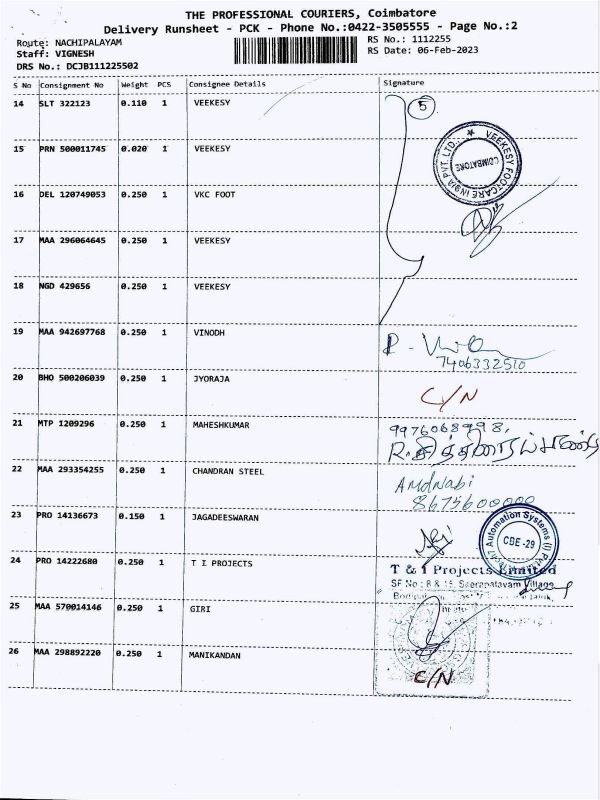 THE PROFESSIONAL COURIERS, Coimbatore
Delivery Runsheet - PCK - Phone No.:0422-3505555 - Page No.:2
Route: NACHIPALAYAM RS No.: 1112255
Staff: VIGNESH RS Date: 06-Feb-2023
DRS No.: DCJB111225502
S No Consignment No Weight PCS Consignee Details Signature
14 SLT 322123 0.110 1 VEEKESY 5
15 PRN 500011745 0.020 1 VEEKESY
VEEKESY FOOTCARE INDIA PVT. LTD.
COIMBATORE
16 DEL 120749053 0.250 1 VKC FOOT
17 MAA 296064645 0.250 1 VEEKESY
18 NGD 429656 0.250 1 VEEKESY
19 MAA 942697768 0.250 1 VINODH
7406332510
20 BHO 500206039 0.250 1 JYORAJA C/N
21 MTP 1209296 0.250 1 MAHESHKUMAR
22 MAA 293354255 0.250 1 CHANDRAN STEEL
23 PRO 14136673 0.150 1 JAGADEESWARAN
Automation Systems (I)
CBE -29
24 PRO 14222680 0.250 1 T I PROJECTS
T & I Projects Limited
SF No : 8 & 15, Seerapalayam Village
25 MAA 570014146 0.250 1 GIRI
26 MAA 298892220 0.250 1 MANIKANDAN C/N